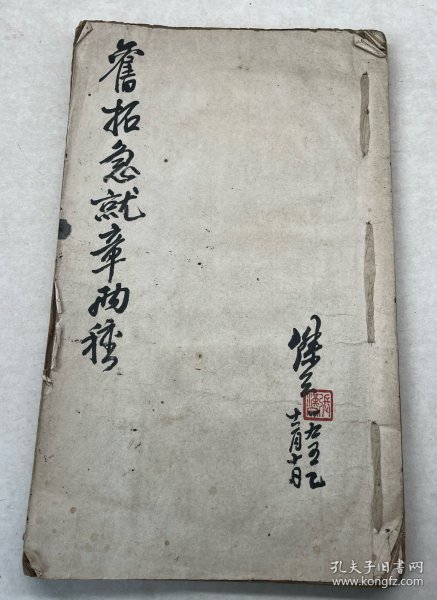 舊拓急就章两種
傑三
一九五乙
十二月十日
孔夫子旧书网
www.kongfz.com